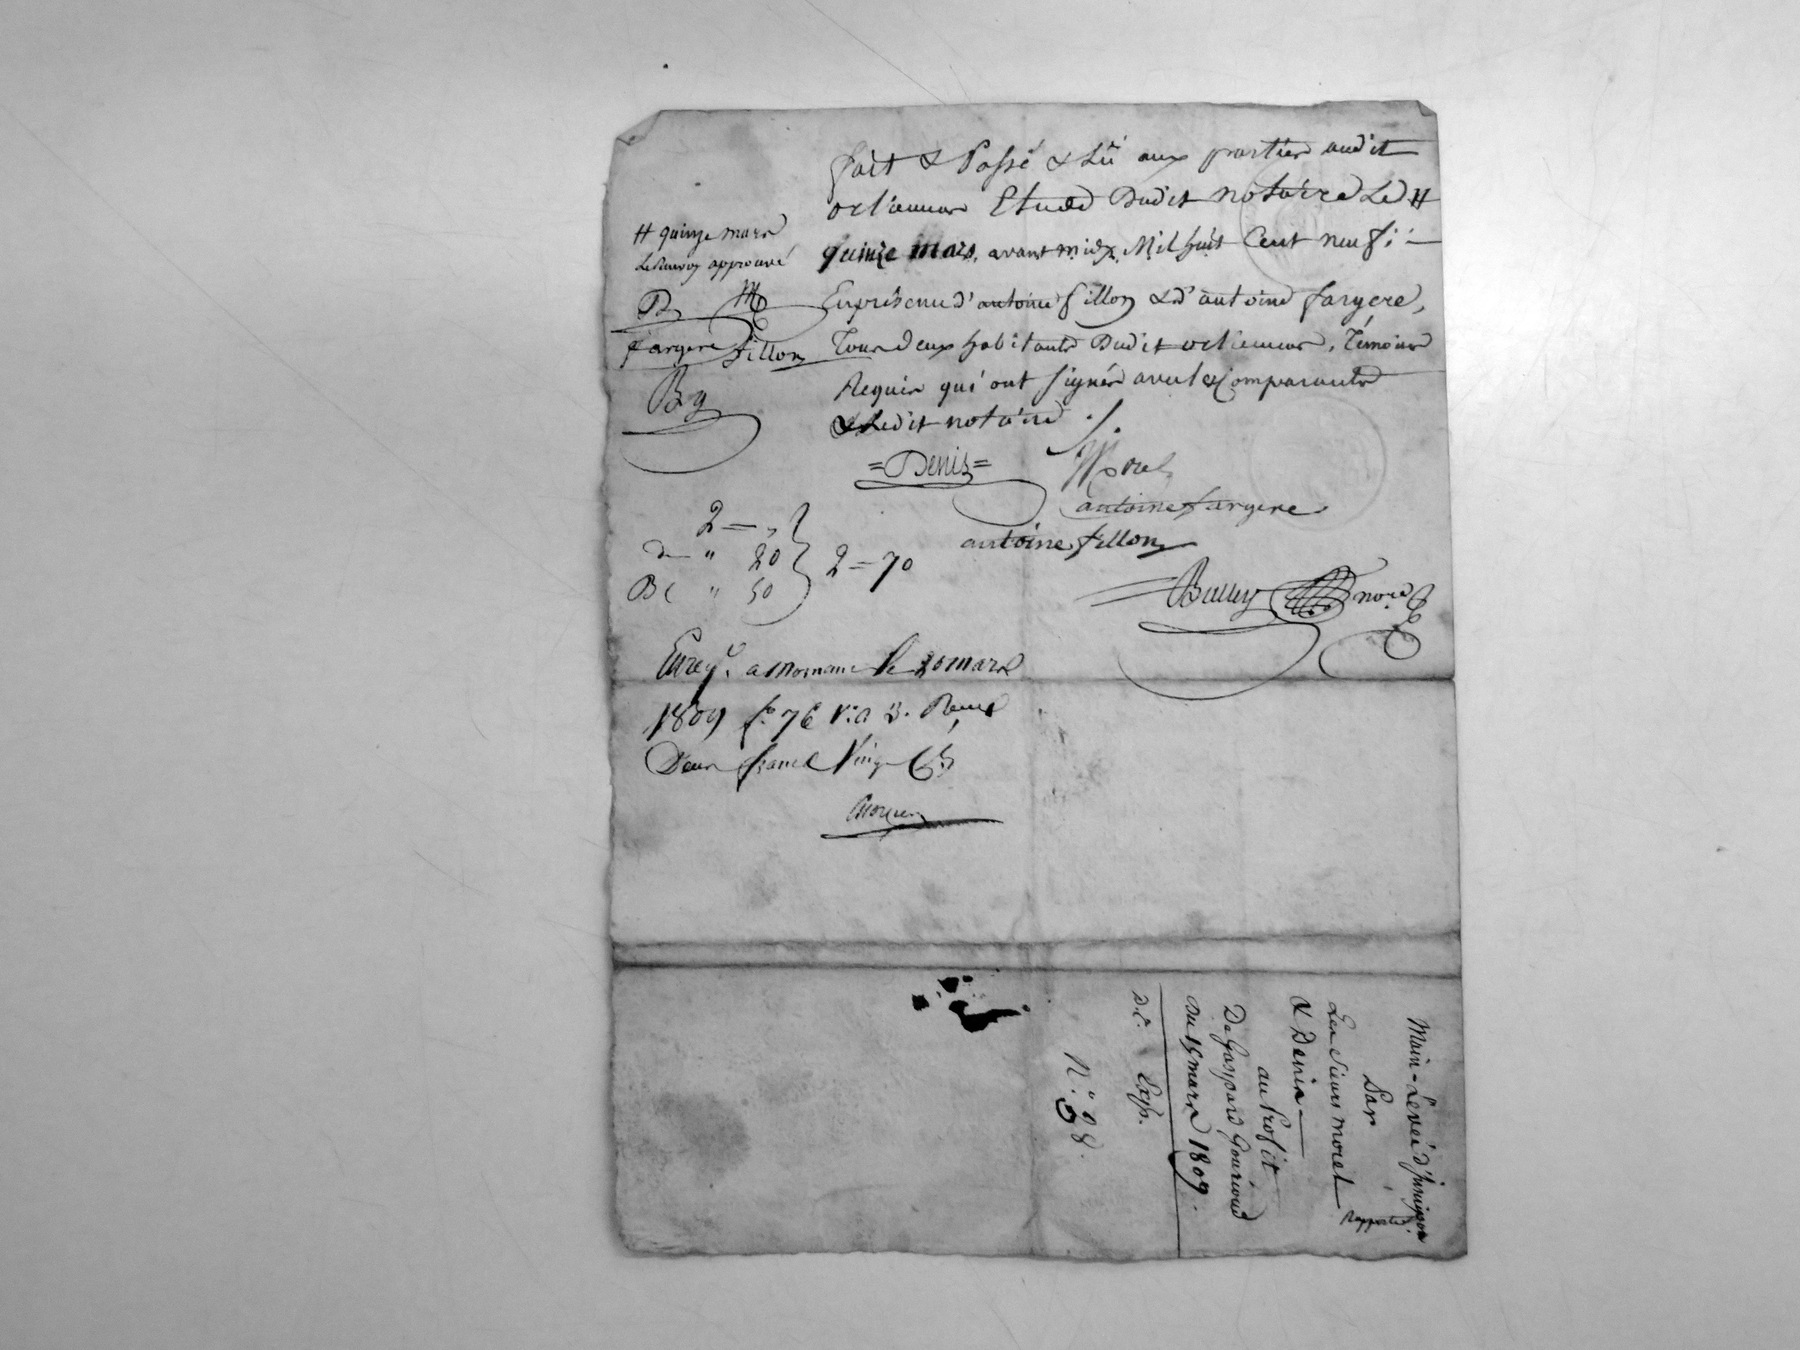 fait & Passé & Lû aux parties audit
orliennas Etude Dudit notaire Le #
quinze mars, avant midy, Mil huit Cent neuf; -
En présence d'antoine fillon & d'antoine fargere,
Tous deux habitants Dudit orliennas, Témoins
Requis qui ont signés avec les Comparants
& Ledit notaire ./.
# quinze mars
Le Renvoy approuvé
D M
fargere fillon
By
=Denis= Morel
antoine fargere
antoine fillon
Bully nore
2 = "
de " 20
Be " 50
2 = 70
Enregt. a Mornant le 20 mars
1809 fo. 76 Vo. C 3. Reçu
Deux francs Vingt Cs
Main-Levée d'
Par
Les Sieurs morel
& Denis —
au Profit
De Gaspard
Du 15 mars 1809.
Rapportée.
D.E. Exp.
N.o 98.